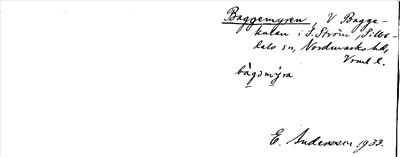 Baggemyren, V Bagge-
kulan i S. Ström, Sillbo-
dals sn, Nordmarks hd,
Vrml l.
bàgəmýra
E. Andersson 1933.